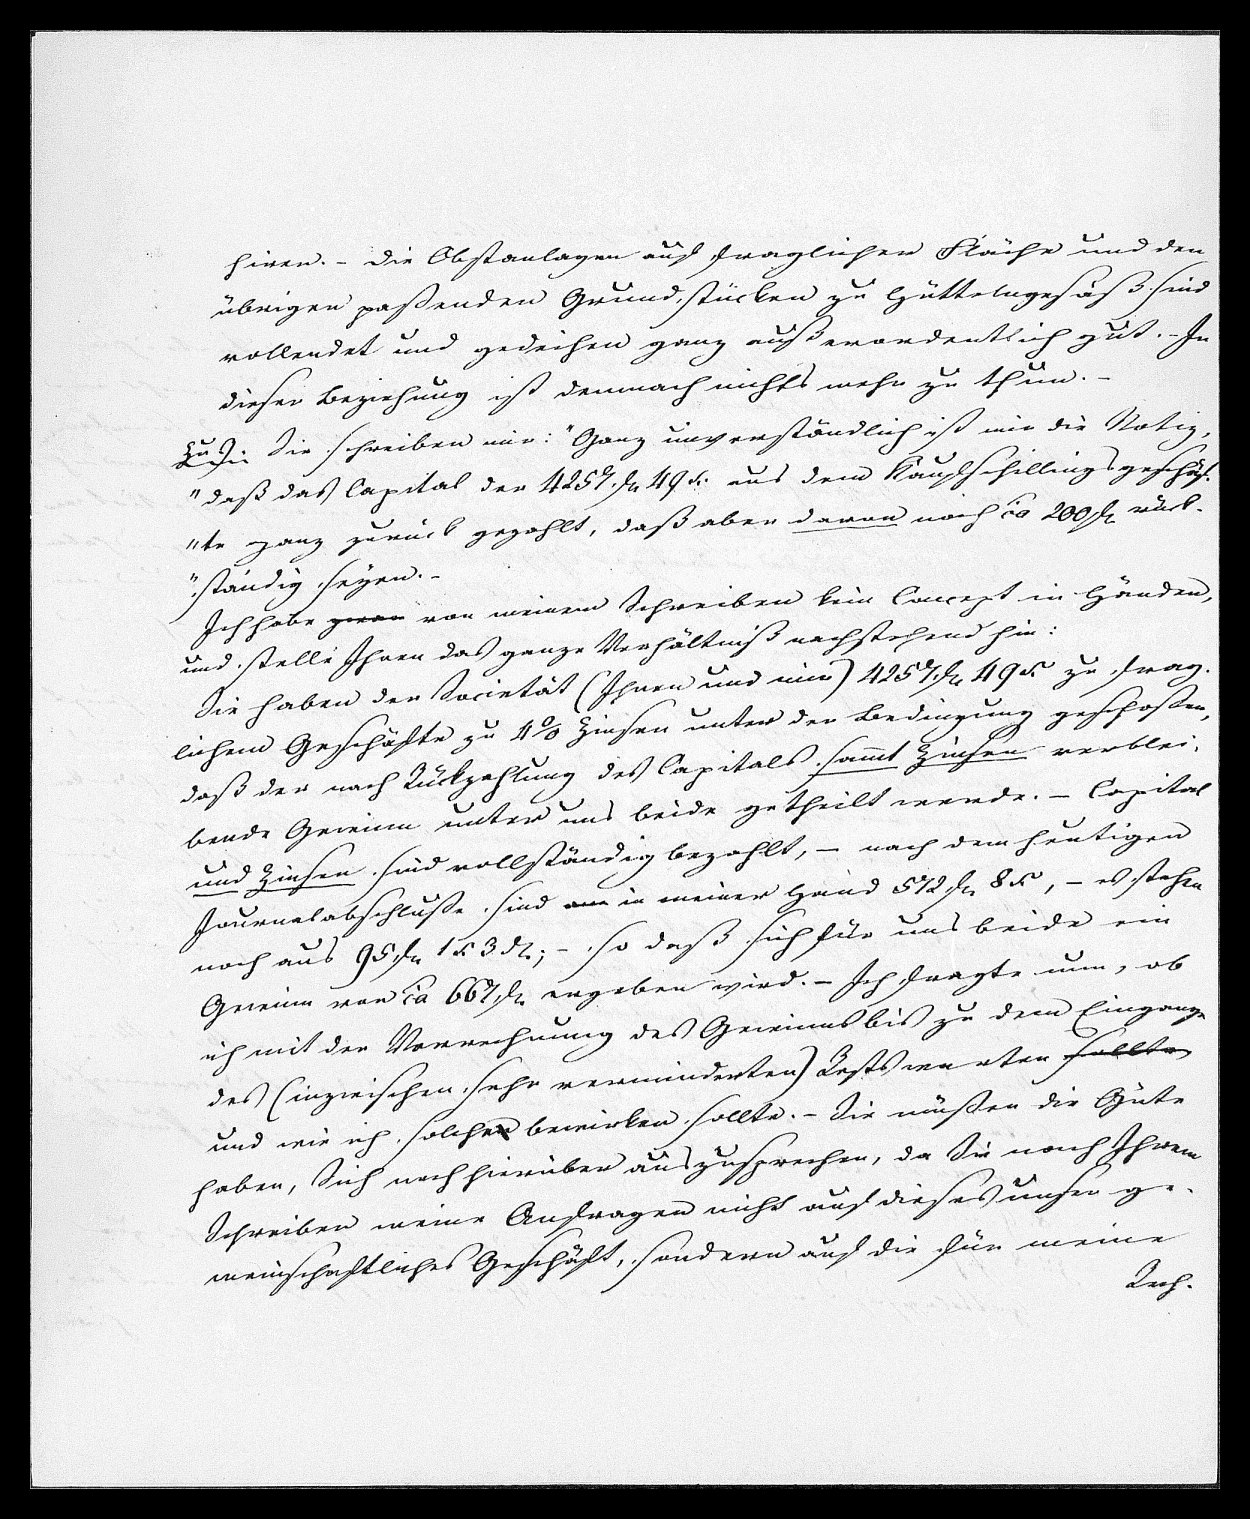 hiren. – Die Obstanlagen auf fraglicher Fläche und den
übrigen paßenden Grundstücken zu Hüttelngesäß sind
vollendet und gedeihen ganz außerordentlich gut. – In
dieser Beziehung ist demnach nichts mehr zu thun. –
Zu Sie schreiben mir: "Ganz unverständlich ist mir die Notiz,
"daß das Capital der 4257 fl 49 x aus dem Kaufschillingsgeschäf-
"te ganz zurück gezahlt, daß aber davon noch ca 200 fl rück-
"ständig seyen. –
Ich habe von meinem Schreiben kein Concept in Händen,
und stelle Ihnen das ganze Verhältniß nachstehend hin:
Sie haben der Societät (Ihnen und mir) 4257 fl 49 x zu frag-
lichem Geschäfte zu 4% Zinsen unter der Bedingung geschoßen,
daß der nach Rückzahlung des Capitals sammt Zinsen verblei-
bende Gewinn unter uns beide getheilt werde. – Capital
und Zinsen sind vollständig bezahlt, – nach dem heutigen
Journalabschluße sind am in meiner Hand 572 fl 8 x, – es stehen
noch aus 95 fl 1 x 3 d; – so daß sich für uns beide ein
Gewinn von ca 667 fl ergeben wird. – Ich fragte nun, ob
ich mit der Verrechnung des Gewinns bis zu dem Eingange
des (inzwischen sehr verminderten) Rests warten sollte
und wie ich solchen bewirken sollte. – Sie müßen die Güte
haben, Sich noch hierüber auszusprechen, da Sie nach Ihrem
Schreiben meine Anfragen nicht auf dieses unser ge-
meinschaftliches Geschäft, sondern auf die für meine
Rech-